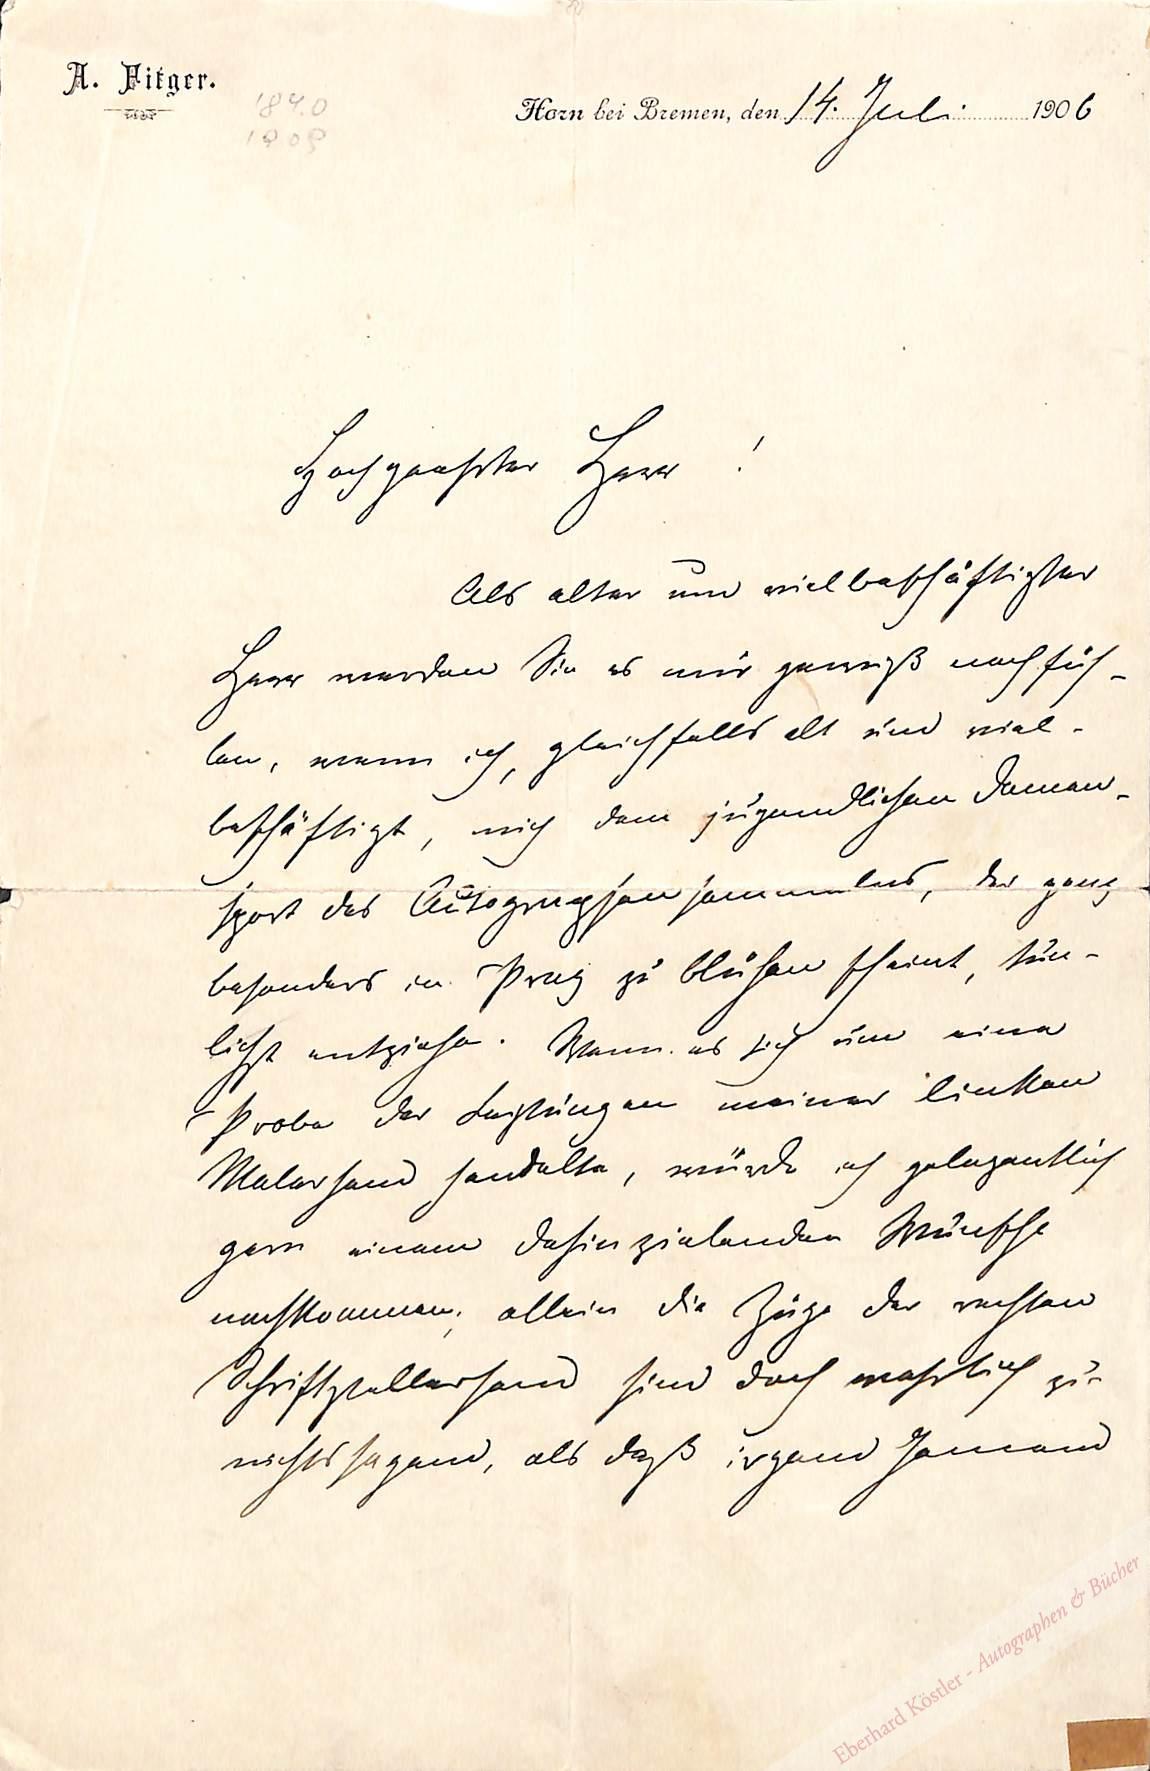 A. Fitger.
1840
1909
Horn bei Bremen, den 14. Juli 1906
Hochgeehrter Herr!
Als alter und vielbeschäftigter
Herr werden Sie es mir gewiß nachfüh-
len, wenn ich, gleichfalls alt und viel-
beschäftigt, mich dem jugendlichen Damen-
sport des Autographensammelns, der ganz
besonders in Prag zu blühen scheint, tun-
lichst entziehe. Wenn es sich um eine
Probe der Leistungen meiner linken
Malerhand handelte, würde ich gelegentlich
gern einem dahinzielenden Wunsche
nachkommen; allein die Züge der rechten
Schriftstellerhand sind doch wahrlich zu
nichtssagend, als daß irgend Jemand
Eberhard Köstler - Autographen & Bücher